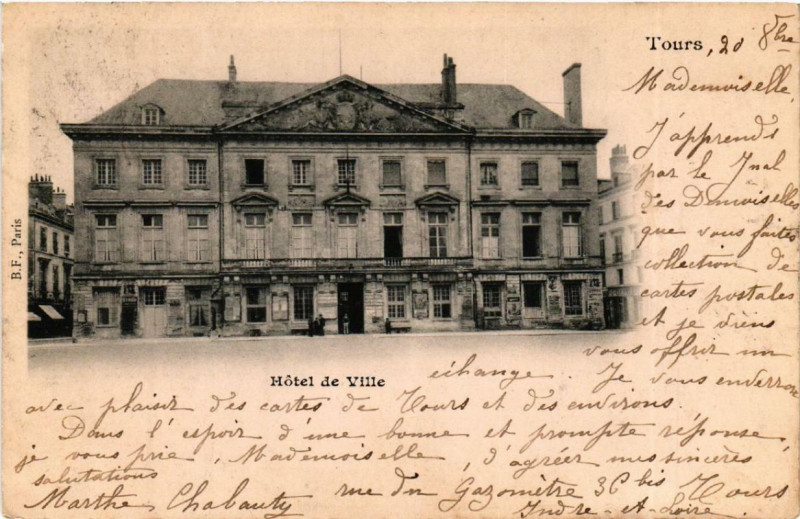 Tours, 20 8bre
Mademoiselle,
J'apprends
par le Jnal
des Demoiselles
que vous faites
collection de
cartes postales
et je viens
vous offrir un
échange. Je vous enverrai
avec plaisir des cartes de Tours et des environs.
Dans l'espoir d'une bonne et prompte réponse,
je vous prie, Mademoiselle, d'agréer mes sincères
salutations
Marthe Chabauty rue du Gazomètre 36 bis Tours
Indre-et-Loire.
Hôtel de Ville
B.F., Paris